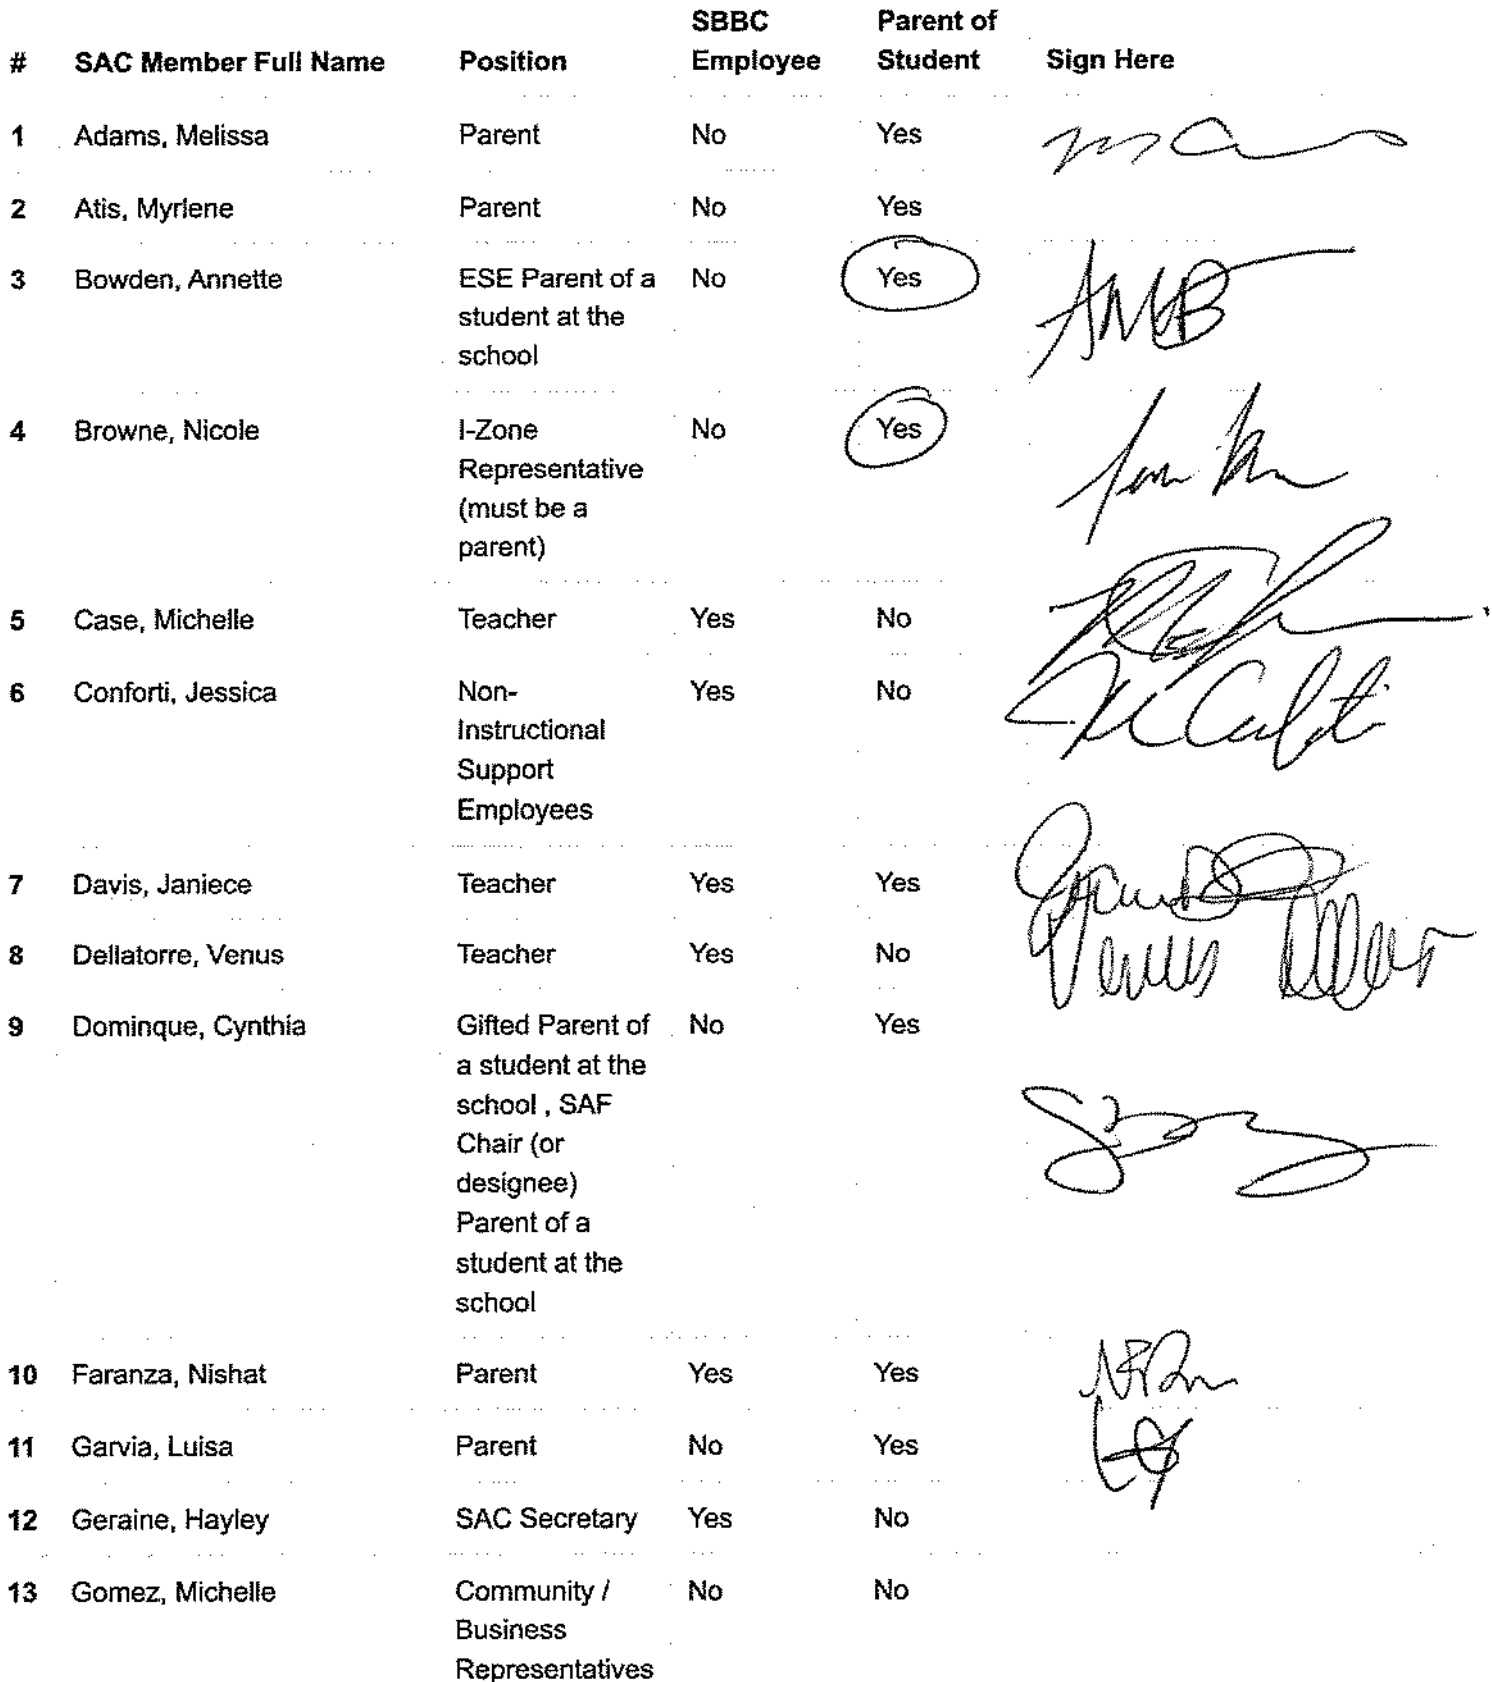 # SAC Member Full Name Position SBBC Employee Parent of Student Sign Here
1 Adams, Melissa Parent No Yes
2 Atis, Myrlene Parent No Yes
3 Bowden, Annette ESE Parent of a No Yes AMB
student at the
school
4 Browne, Nicole I-Zone No Yes
Representative
(must be a
parent)
5 Case, Michelle Teacher Yes No
6 Conforti, Jessica Non- Yes No
Instructional
Support
Employees
7 Davis, Janiece Teacher Yes Yes
8 Dellatorre, Venus Teacher Yes No Venus
9 Dominque, Cynthia Gifted Parent of No Yes
a student at the
school , SAF
Chair (or
designee)
Parent of a
student at the
school
10 Faranza, Nishat Parent Yes Yes
11 Garvia, Luisa Parent No Yes LG
12 Geraine, Hayley SAC Secretary Yes No
13 Gomez, Michelle Community / No No
Business
Representatives